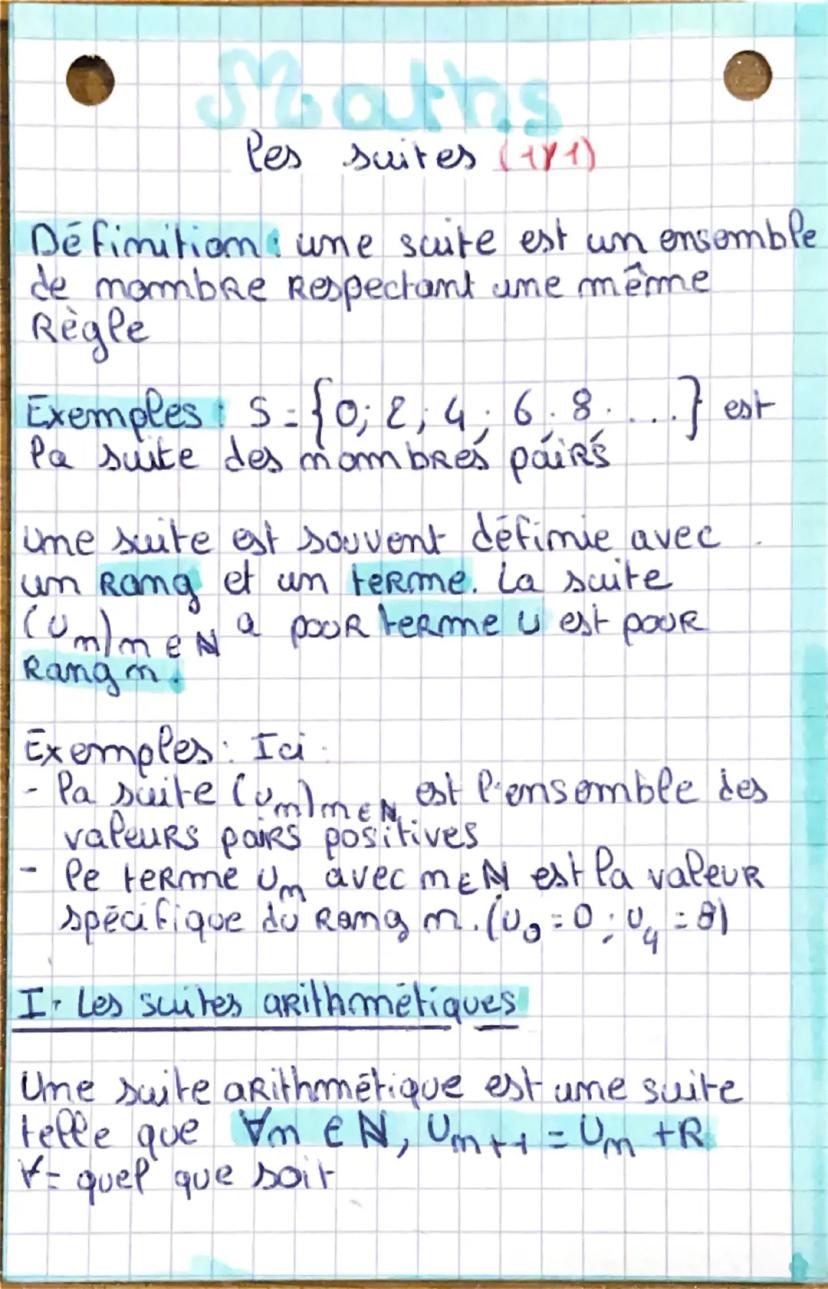 Maths
les suites (1/1)
Définition : une suite est un ensemble
de nombre Respectant une même
Règle
Exemples : S = {0; 2; 4; 6; 8; ...} est
la suite des nombres pairs
une suite est souvent définie avec
un Rang et un terme. La suite
(Un)n∈ℕ a pour terme U est pour
Rang n.
Exemples : Ici :
- la suite (Un)n∈ℕ est l'ensemble des
valeurs pairs positives
- le terme Un avec n∈ℕ est la valeur
spécifique du Rang n. (U0 = 0 ; U4 = 8)
I- Les suites arithmétiques
Une suite arithmétique est une suite
telle que ∀n ∈ ℕ, Un+1 = Un + R
∀ = quel que soit